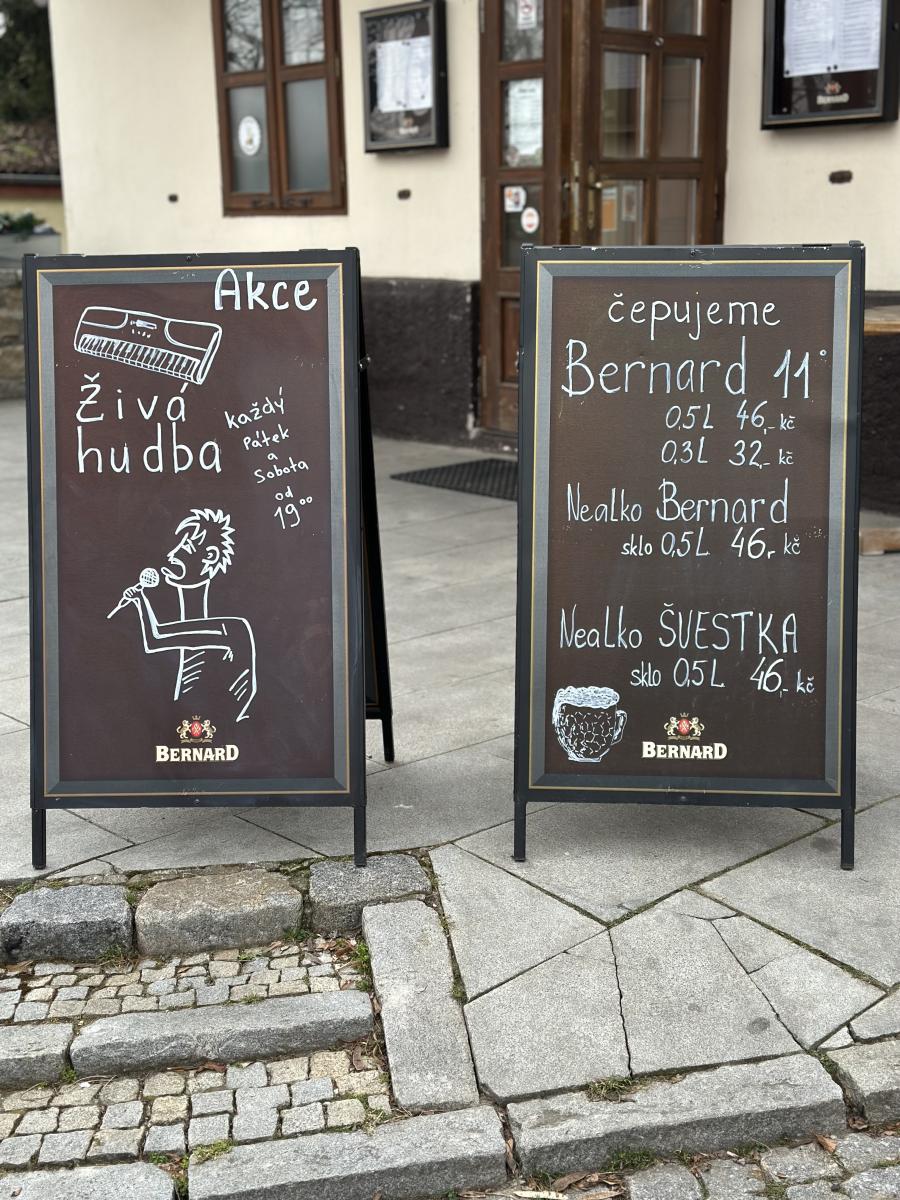 Akce
Živá
hudba
každý
Pátek
a
Sobota
od
19⁰⁰
BERNARD
čepujeme
Bernard 11°
0,5L 46,- kč
0,3L 32,- kč
Nealko Bernard
sklo 0,5L 46,- kč
Nealko ŠVESTKA
sklo 0,5L 46,- kč
BERNARD
BERNARD